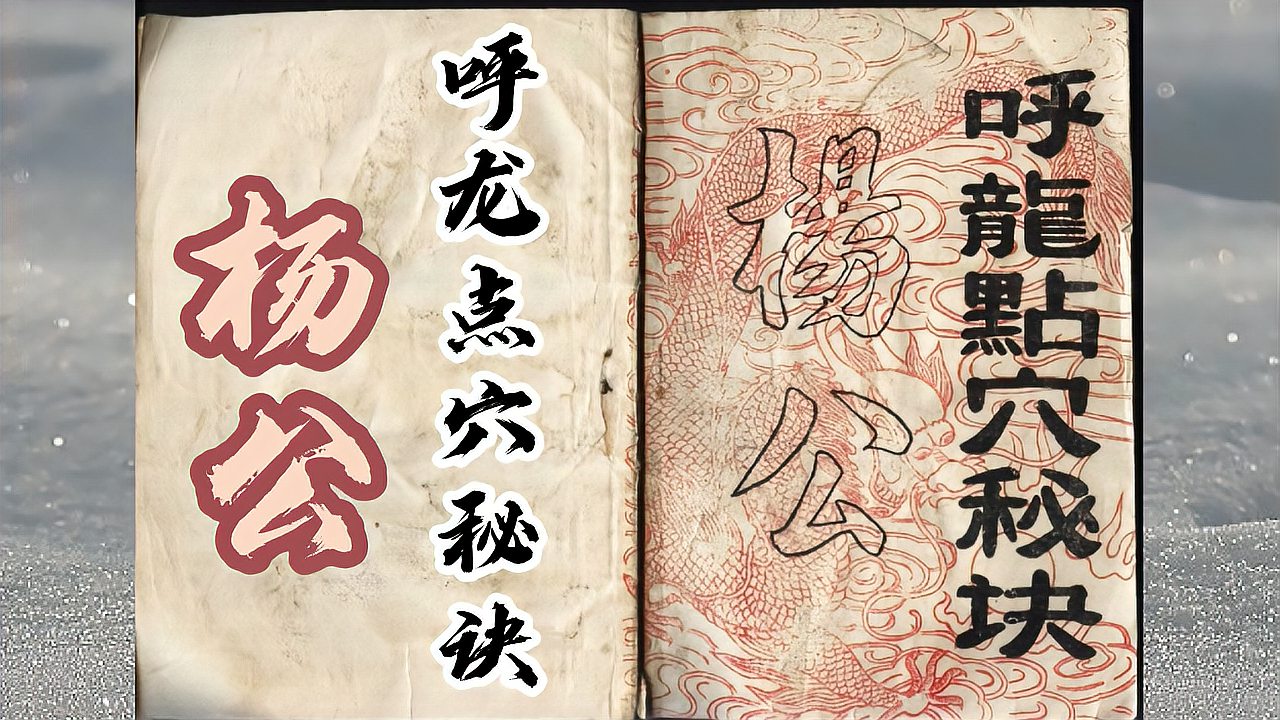 呼龍點穴秘块
楊公
呼龙点穴秘诀
杨公